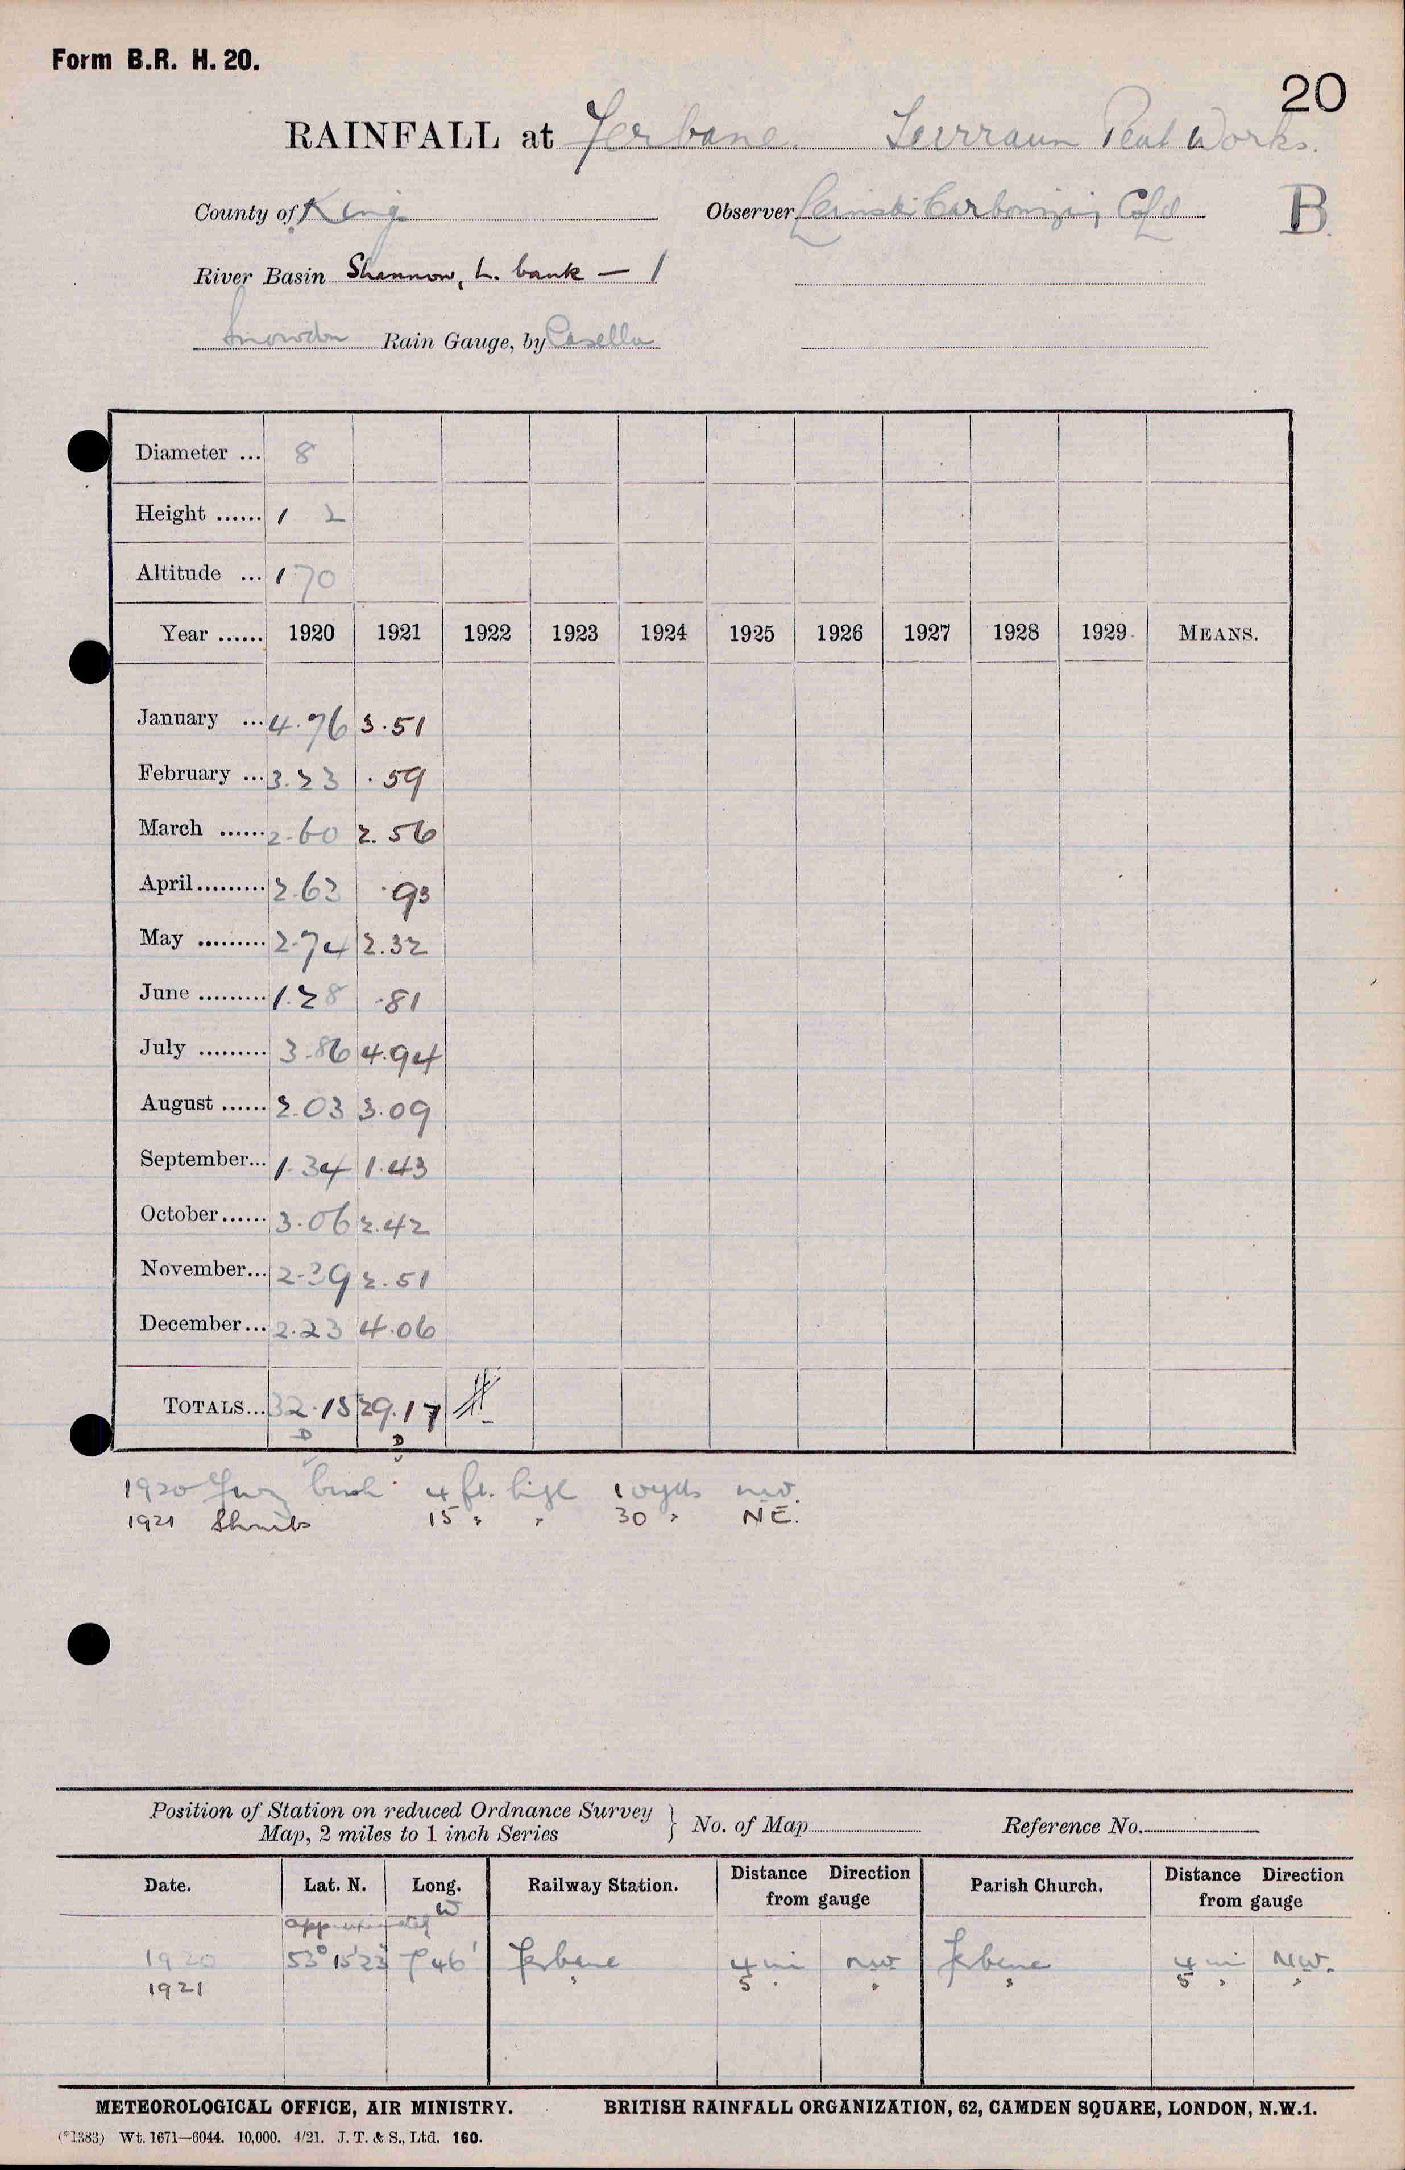 Form B.R. H. 20.
20
RAINFALL at Ferbane. Turraun Peat Works.
County of Kings Observer Leinster Carbonizing Co Ld B.
River Basin Shannon, L. bank — 1
Snowdon Rain Gauge, by Casella
Diameter ... 8
Height ...... 1 2
Altitude ... 170
Year ...... 1920 1921 1922 1923 1924 1925 1926 1927 1928 1929 MEANS.
January ... 4.76 3.51
February ... 3.23 .59
March ...... 2.60 2.56
April ......... 2.63 .93
May ......... 2.74 2.32
June ......... 1.28 .81
July ......... 3.86 4.94
August ...... 2.03 3.09
September... 1.34 1.43
October...... 3.06 2.42
November... 2.39 2.51
December... 2.23 4.06
TOTALS... 32.15 29.17
D D
1920 Furz bush 4 ft. high 10 yds NW.
1921 Shrubs 15 " " 30 " NE.
Position of Station on reduced Ordnance Survey
Map, 2 miles to 1 inch Series } No. of Map Reference No.
Date. Lat. N. Long. W Railway Station. Distance Direction from gauge Parish Church. Distance Direction from gauge
approximately
1920 53° 15' 23" 7° 46' Ferbane 4 mi NW Ferbane 4 mi NW.
1921 " 5 " " " 5 " "
METEOROLOGICAL OFFICE, AIR MINISTRY. BRITISH RAINFALL ORGANIZATION, 62, CAMDEN SQUARE, LONDON, N.W.1.
(*1383) Wt. 1671—6044. 10,000. 4/21. J. T. & S., Ltd. 160.